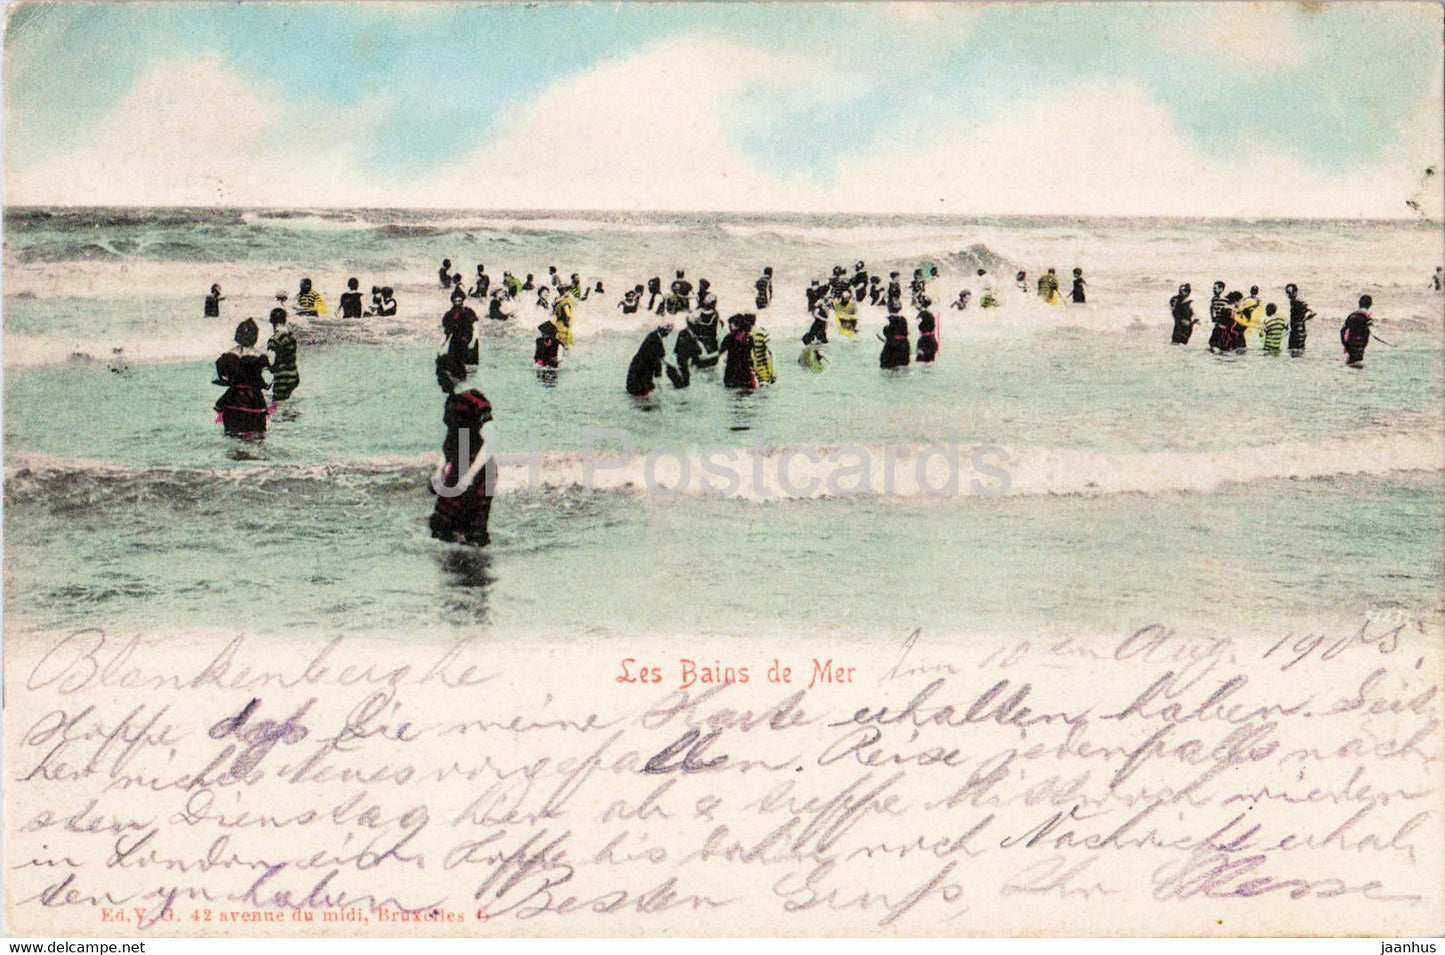 JH Postcards
Blankenberghe Les Bains de Mer den 10 ten Aug. 1905.
Hoffe daß Sie meine Karte erhalten haben. Seit
her nichts Neues vorgefallen. Reise jedenfalls nach
sten Dienstag hier ab & treffe Mittwoch wieder
in London ein. Hoffe bis dahin noch Nachricht erhal
ten zu haben. Besten Gruß, Ihr
Ed. V. G. 42 avenue du midi, Bruxelles 6
www.delcampe.net
jaanhus